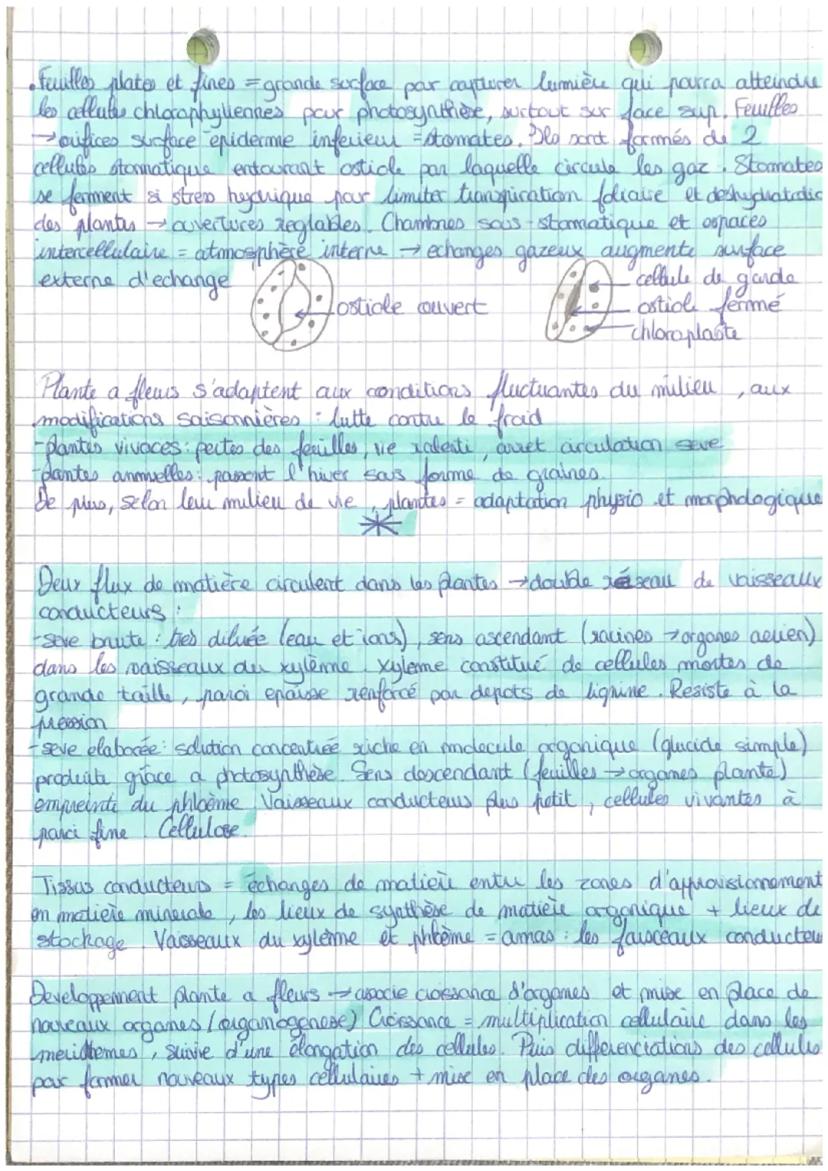 . Feuilles plates et fines = grande surface par capturer lumière qui pourra atteindre
les cellules chlorophyliennes pour photosynthèse, surtout sur face sup. Feuilles
→ orifices surface épiderme inferieur = stomates. Ils sont formés de 2
cellules stomatique entourant ostiole par laquelle circule les gaz. Stomates
se ferment si stress hydrique pour limiter transpiration foliaire et deshydratatic
des plantes → ouvertures reglables. Chambres sous-stomatique et espaces
intercellulaire = atmosphère interne → echanges gazeux augmente surface
externe d'echange
ostiole ouvert
cellule de garde
ostiole fermé
chloroplaste
Plante a fleurs s'adaptent aux conditions fluctuantes du milieu, aux
modifications saisonnières : lutte contre le froid
- plantes vivaces : pertes des feuilles, vie ralenti, arret circulation seve
- plantes annuelles : passent l'hiver sous forme de graines.
De plus, selon leur milieu de vie, plantes = adaptation physio et morphologique
Deux flux de matière circulent dans les plantes → double réseau de vaisseaux
conducteurs :
- seve brute : très diluée (eau et ions), sens ascendant (racines → organes aerien)
dans les vaisseaux du xylème. Xyleme constitué de cellules mortes de
grande taille, paroi epaisse renforcé par depots de lignine. Resiste à la
pression
- seve elaborée : solution concentrée riche en molecule organique (glucide simple)
produite grâce a photosynthèse. Sens descendant (feuilles → organes plante)
empreinte du phloème. Vaisseaux conducteurs plus petit, cellules vivantes à
paroi fine. Cellulose.
Tissus conducteurs = échanges de matière entre les zones d'approvisionnement
en matière minerale, les lieux de synthèse de matière organique + lieux de
stockage. Vaisseaux du xylème et phloème = amas : les faisceaux conducteu
Developpement plante a fleurs → associe croissance d'organes et mise en place de
nouveaux organes (organogenose) Croissance = multiplication cellulaire dans les
meristemes, suivie d'une élongation des cellules. Puis differenciations des cellules
par former nouveaux types cellulaires + mise en place des organes.